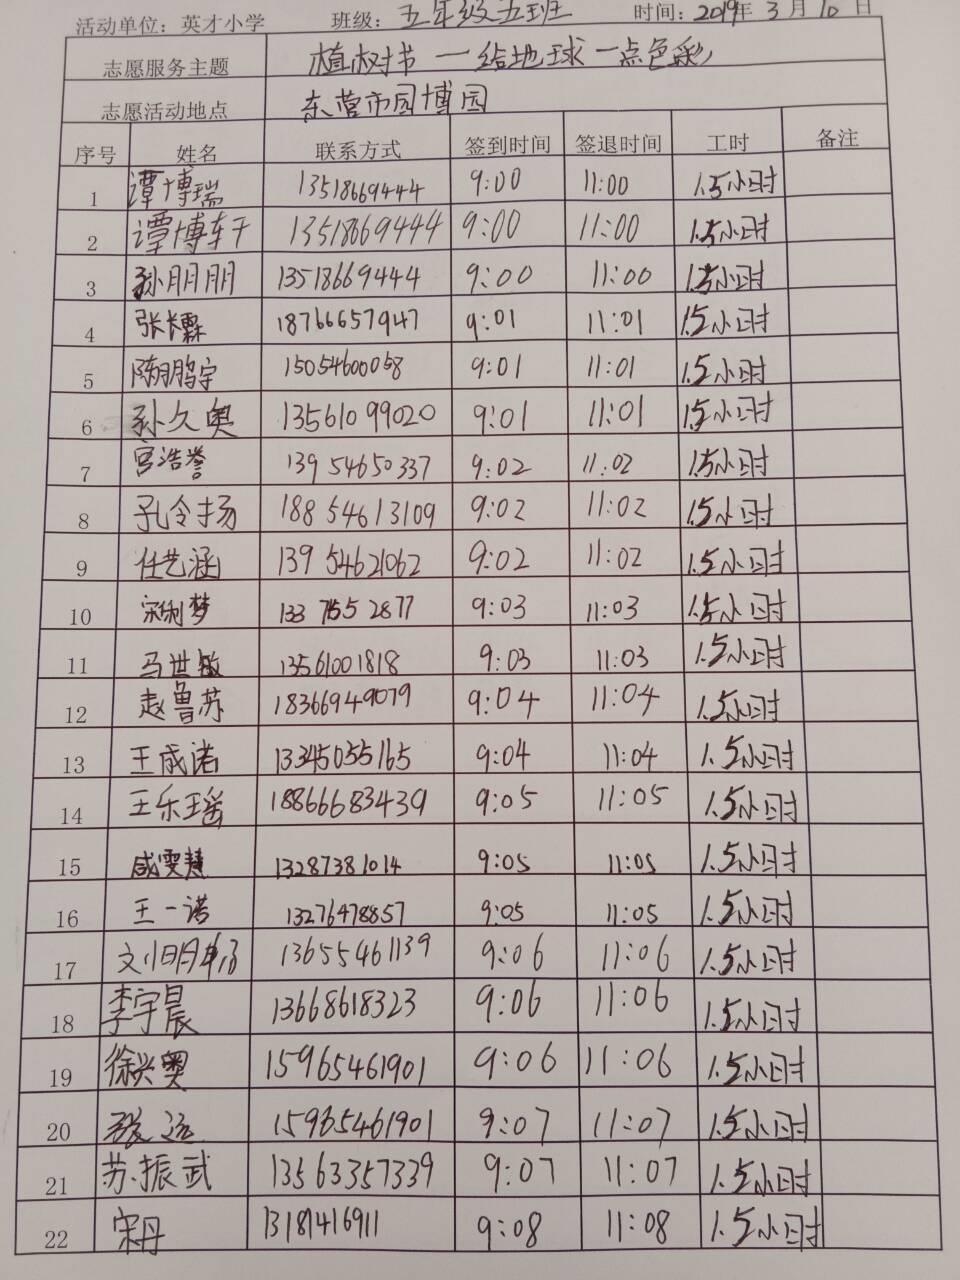 活动单位：英才小学 班级：五年级五班 时间：2019年3月10日
志愿服务主题 植树节—给地球一点色彩
志愿活动地点 东营市园博园
序号 姓名 联系方式 签到时间 签退时间 工时 备注
1 谭博瑞 13518669444 9:00 11:00 1.5小时
2 谭博轩 13518669444 9:00 11:00 1.5小时
3 孙朋朋 13518669444 9:00 11:00 1.5小时
4 张长霖 18766657947 9:01 11:01 1.5小时
5 陈鹏宇 15054600058 9:01 11:01 1.5小时
6 孙久奥 13561099020 9:01 11:01 1.5小时
7 宫浩誉 13954650337 9:02 11:02 1.5小时
8 孔令扬 18854613109 9:02 11:02 1.5小时
9 任艺涵 13954621062 9:02 11:02 1.5小时
10 9:03 11:03 1.5小时
11 马世敏 13561001818 9:03 11:03 1.5小时
12 赵鲁苏 18366949079 9:04 11:04 1.5小时
13 王成诺 13345055165 9:04 11:04 1.5小时
14 王乐瑶 18866683439 9:05 11:05 1.5小时
15 咸雯慧 13287381014 9:05 11:05 1.5小时
16 王一诺 13276478857 9:05 11:05 1.5小时
17 13655461139 9:06 11:06 1.5小时
18 李宇晨 13668618323 9:06 11:06 1.5小时
19 徐兴奥 15965461901 9:06 11:06 1.5小时
20 张远 15965461901 9:07 11:07 1.5小时
21 苏振武 13563357339 9:07 11:07 1.5小时
22 宋丹 13181416911 9:08 11:08 1.5小时